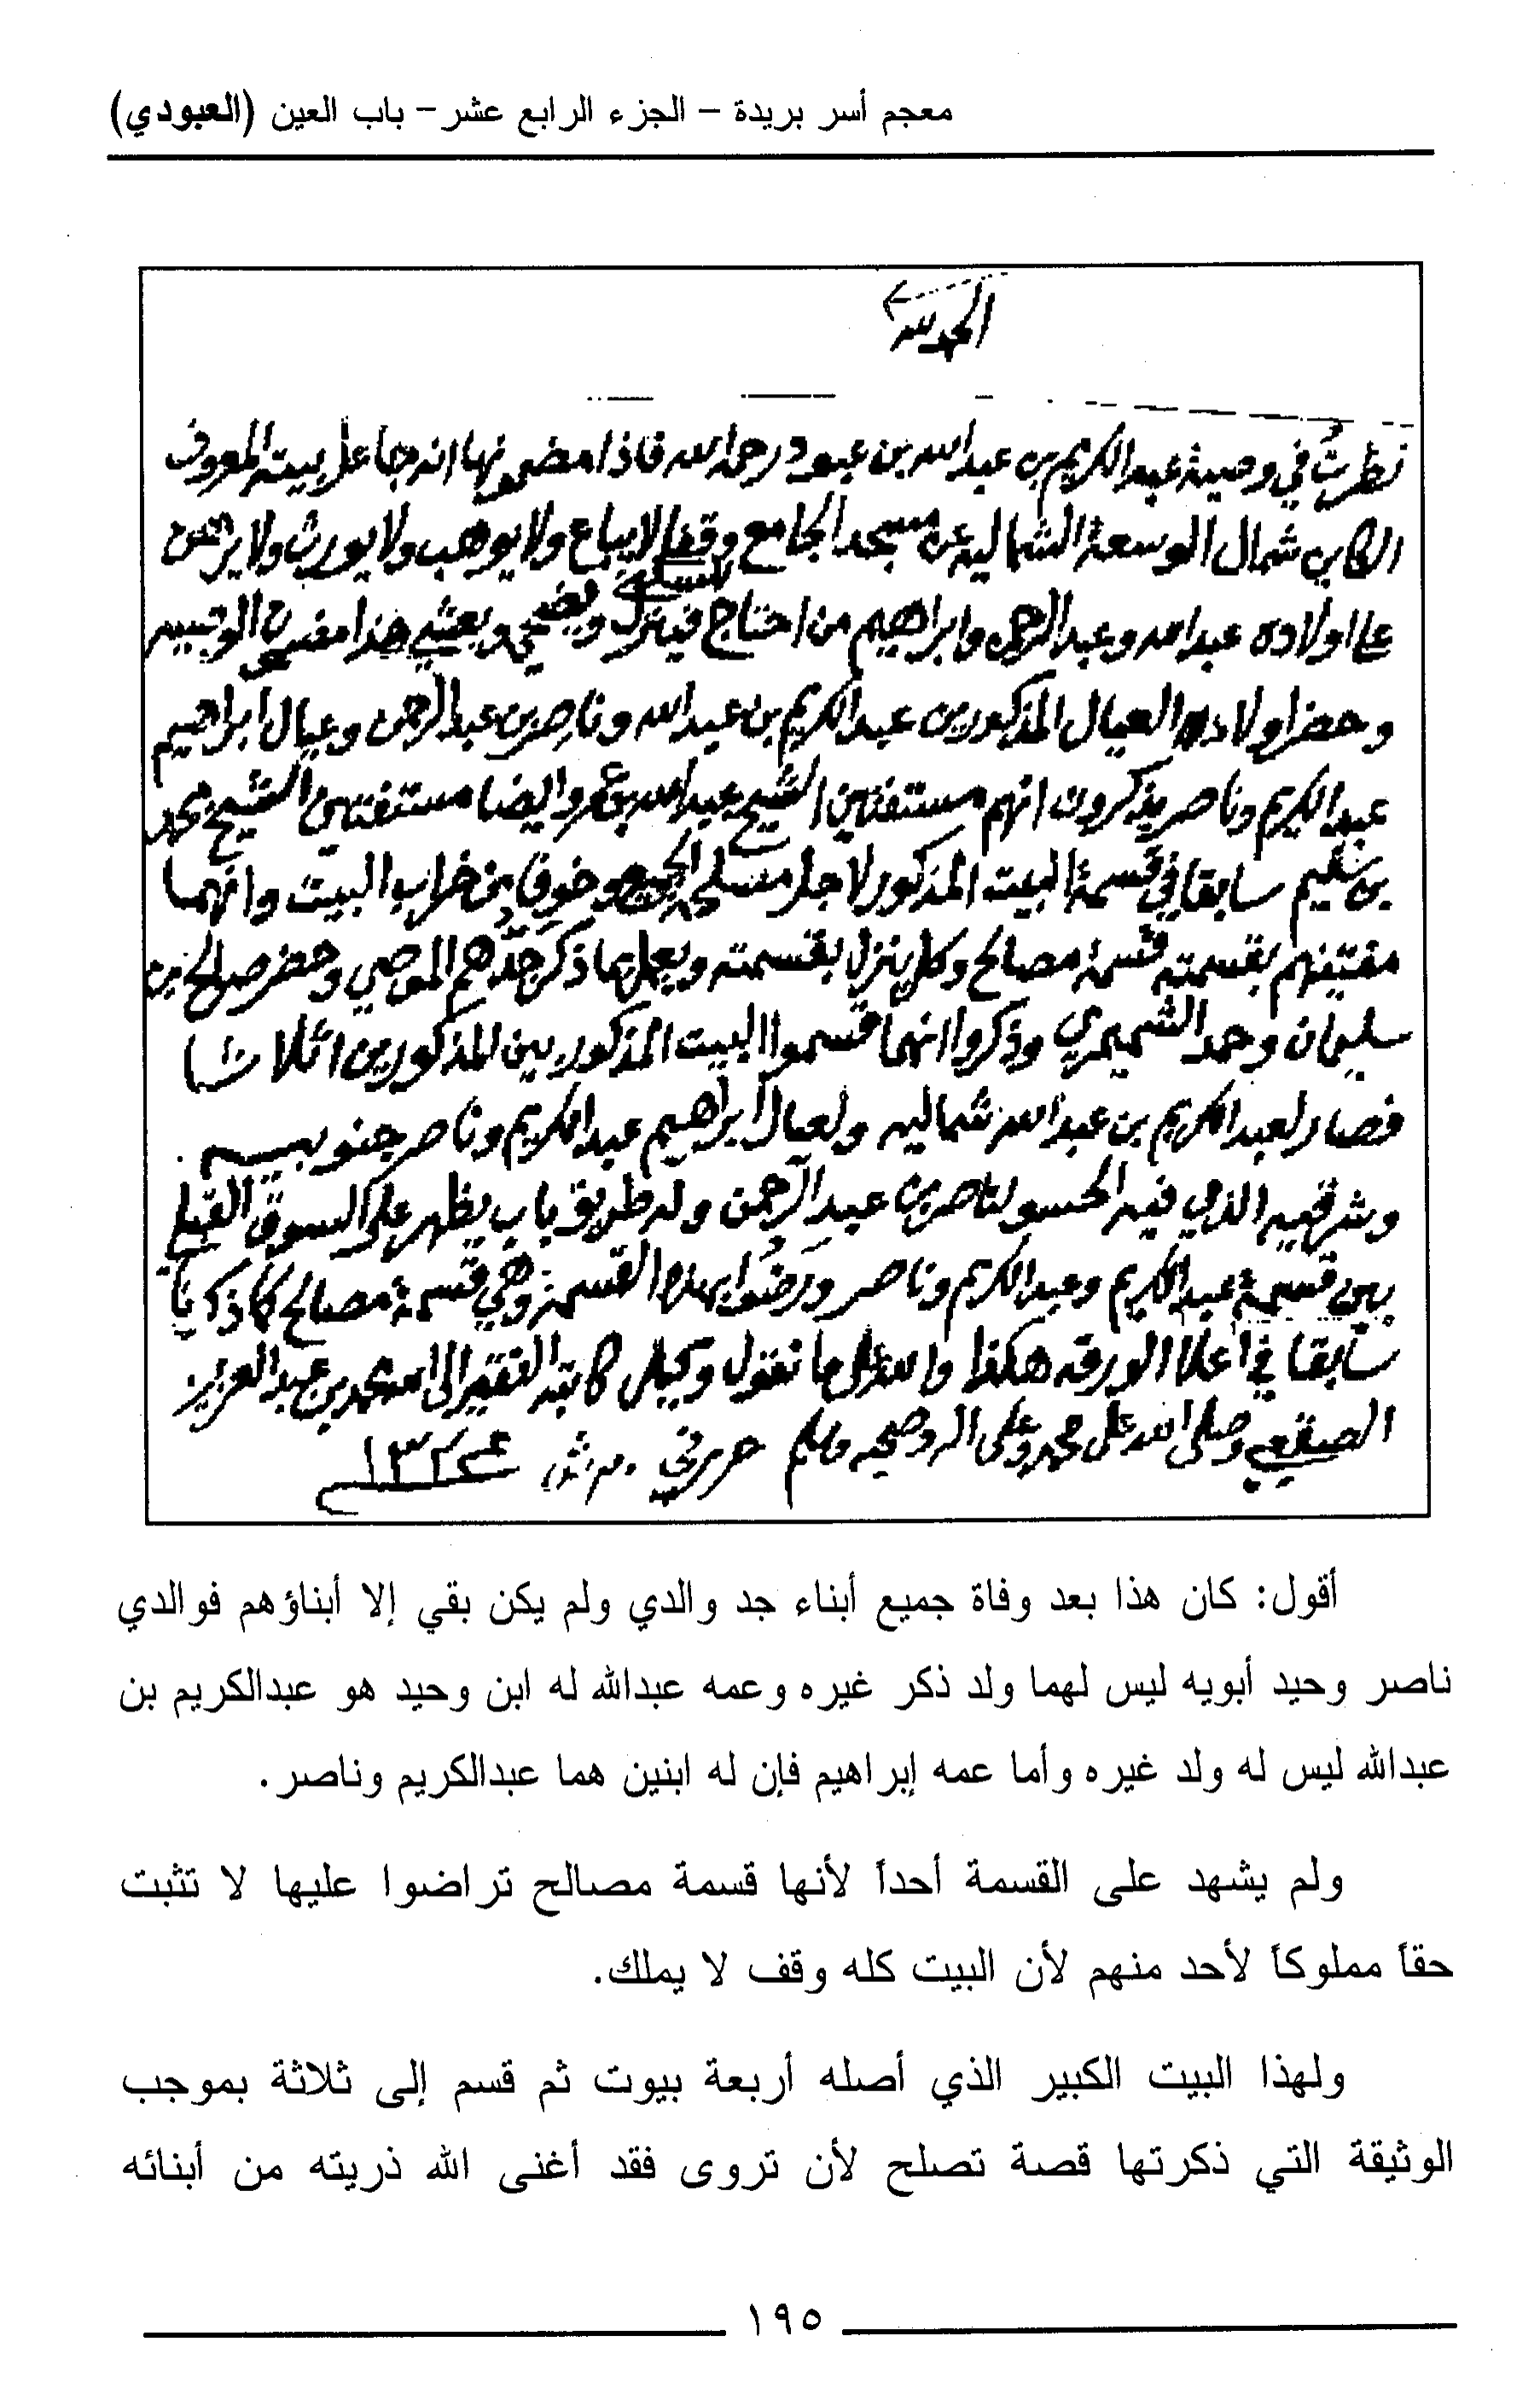 معجم أسر بريدة – الجزء الرابع عشر – باب العين (العبودي)
الحمد لله
نظرت في وصية عبدالكريم بن عبدالله بن عبود رحمه الله فاذا مضمونها انه جاعل بيته المعروف
الكاين شمال الوسعة الشمالية عن مسجد الجامع وقفا لا يباع ولا يوهب ولا يورث ولا يرهن
على اولاده عبدالله وعبدالرحمن وابراهيم من احتاج فينزل ويضحي ويعشي هذا مضمون الوصيه
وحضر اولاده العيال المذكورين عبدالكريم بن عبدالله وناصر بن عبدالرحمن وعيال ابراهيم
عبدالكريم وناصر يذكرون انهم مستفتين الشيخ عبدالله وايضا مستفتين الشيخ محمد
بن سليم سابقا في قسمة البيت المذكور لاجل مصلحة الجميع وخوف من خراب البيت وانهما
مفتينهم بقسمته قسمة مصالح وكل ينزل بقسمته ويعمل بما ذكر جدهم الموصي وحضر صالح بن
سليمان وحمد الشميمري وذكروا انهما قسموا البيت المذكور بين المذكورين اثلاثا
فصار لعبدالكريم بن عبدالله شماليه ولعيال ابراهيم عبدالكريم وناصر جنوبيه
وشرقيه الذي فيه الحسو لناصر بن عبدالرحمن وله طريق باب يظهر على السوق القبلي
بين قسمة عبدالكريم وعبدالكريم وناصر ورضوا بهذه القسمة وهي قسمة مصالح كما ذكرنا
سابقا في اعلا الورقه هكذا والله على ما نقول وكيل كاتبه الفقير الى الله محمد بن عبدالعزيز
الصقعبي وصلى الله على محمد وعلى اله وصحبه وسلم حرر في
أقول: كان هذا بعد وفاة جميع أبناء جد والدي ولم يكن بقي إلا أبناؤهم فوالدي
ناصر وحيد أبويه ليس لهما ولد ذكر غيره وعمه عبدالله له ابن وحيد هو عبدالكريم بن
عبدالله ليس له ولد غيره وأما عمه إبراهيم فإن له ابنين هما عبدالكريم وناصر.
ولم يشهد على القسمة أحداً لأنها قسمة مصالح تراضوا عليها لا تثبت
حقاً مملوكاً لأحد منهم لأن البيت كله وقف لا يملك.
ولهذا البيت الكبير الذي أصله أربعة بيوت ثم قسم إلى ثلاثة بموجب
الوثيقة التي ذكرتها قصة تصلح لأن تروى فقد أغنى الله ذريته من أبنائه
١٩٥